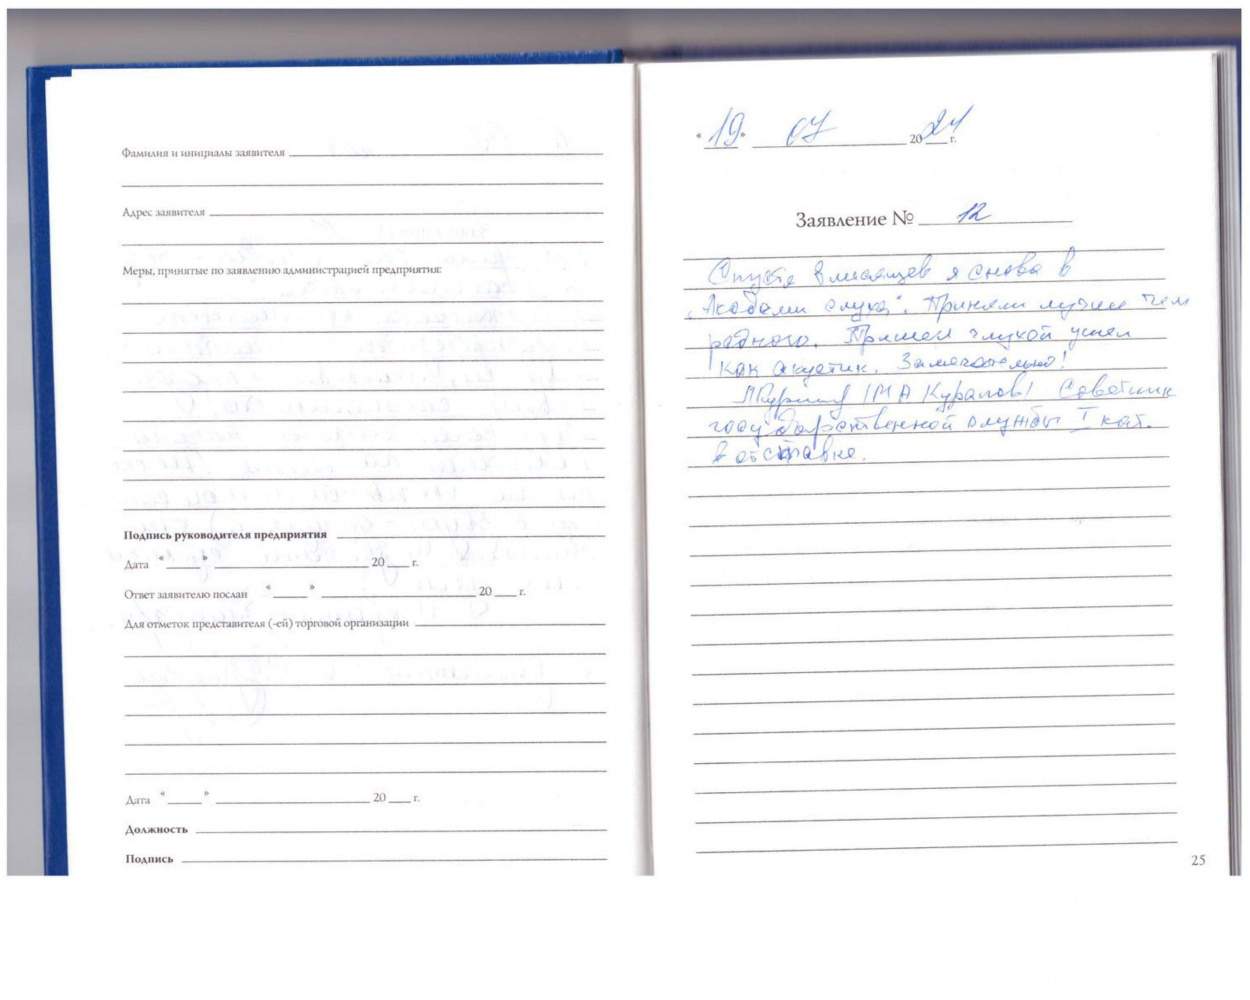 Фамилия и инициалы заявителя
Адрес заявителя
Меры, принятые по заявлению администрацией предприятия:
Подпись руководителя предприятия
Дата "____" ____ 20 ___ г.
Ответ заявителю послан "____" ____ 20 ___ г.
Для отметок представителя (-ей) торговой организации
Дата "____" ____ 20 ___ г.
Должность
Подпись
"19" 07 2024 г.
Заявление № 12
Спустя 8 месяцев я снова в
"Академии слуха". Приняли лучше чем
родного. Пришел глухой ушел
как акустик. Замечательно!
(М А Курапов) Советник
государственной службы I кат.
в отставке.
25